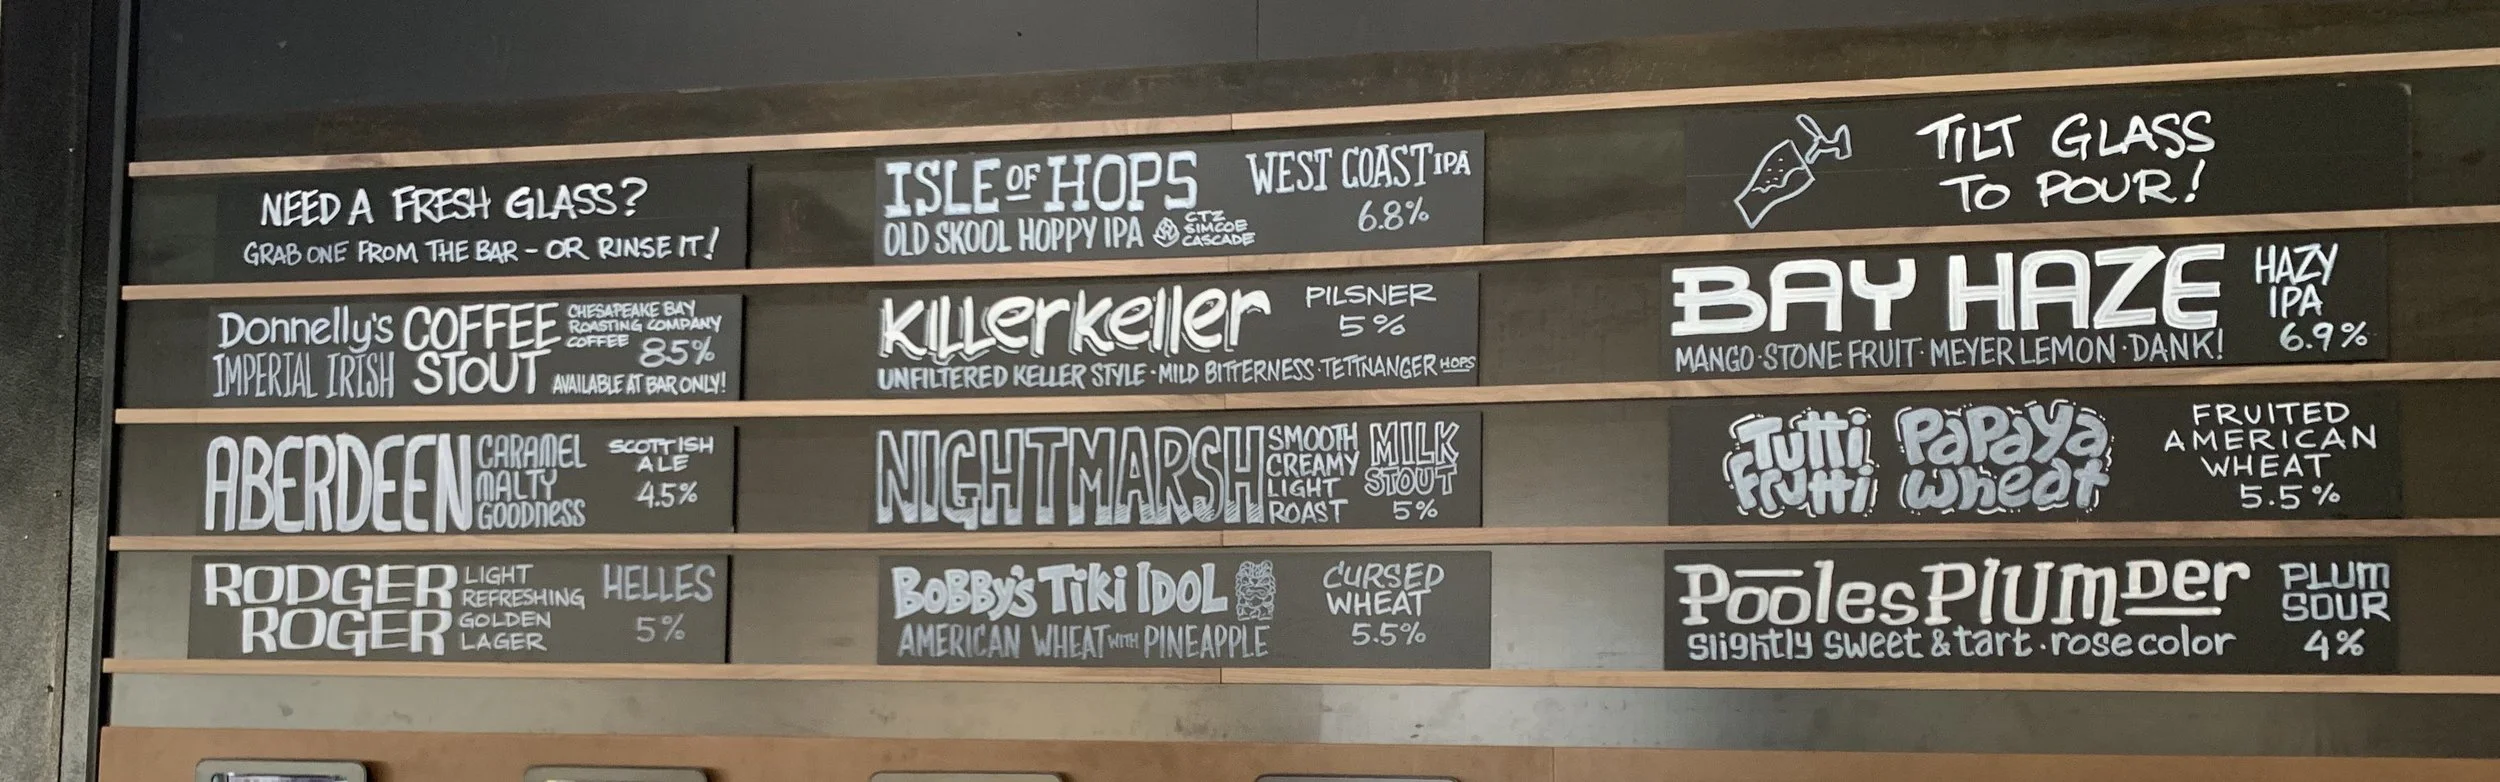 NEED A FRESH GLASS?
GRAB ONE FROM THE BAR - OR RINSE IT!
Donnelly's COFFEE STOUT
IMPERIAL IRISH
CHESAPEAKE BAY
ROASTING COMPANY
COFFEE
8.5%
AVAILABLE AT BAR ONLY!
ABERDEEN
CARAMEL
MALTY
GOODNESS
SCOTTISH
ALE
4.5%
RODGER
ROGER
LIGHT
REFRESHING
GOLDEN
LAGER
HELLES
5%
ISLE OF HOPS
OLD SKOOL HOPPY IPA
CTZ
SIMCOE
CASCADE
WEST COAST IPA
6.8%
KILLerkeller
PILSNER
5%
UNFILTERED KELLER STYLE · MILD BITTERNESS · TETTNANGER HOPS
NIGHTMARSH
SMOOTH
CREAMY
LIGHT
ROAST
MILK
STOUT
5%
BOBBY'S TiKi IDOL
AMERICAN WHEAT WITH PINEAPPLE
CURSED
WHEAT
5.5%
TILT GLASS
TO POUR!
BAY HAZE
MANGO · STONE FRUIT · MEYER LEMON · DANK!
HAZY
IPA
6.9%
Tutti
Frutti
PaPaya
wheat
FRUITED
AMERICAN
WHEAT
5.5%
Pooles PlUmper
Slightly Sweet & tart · rose color
PLUM
SOUR
4%